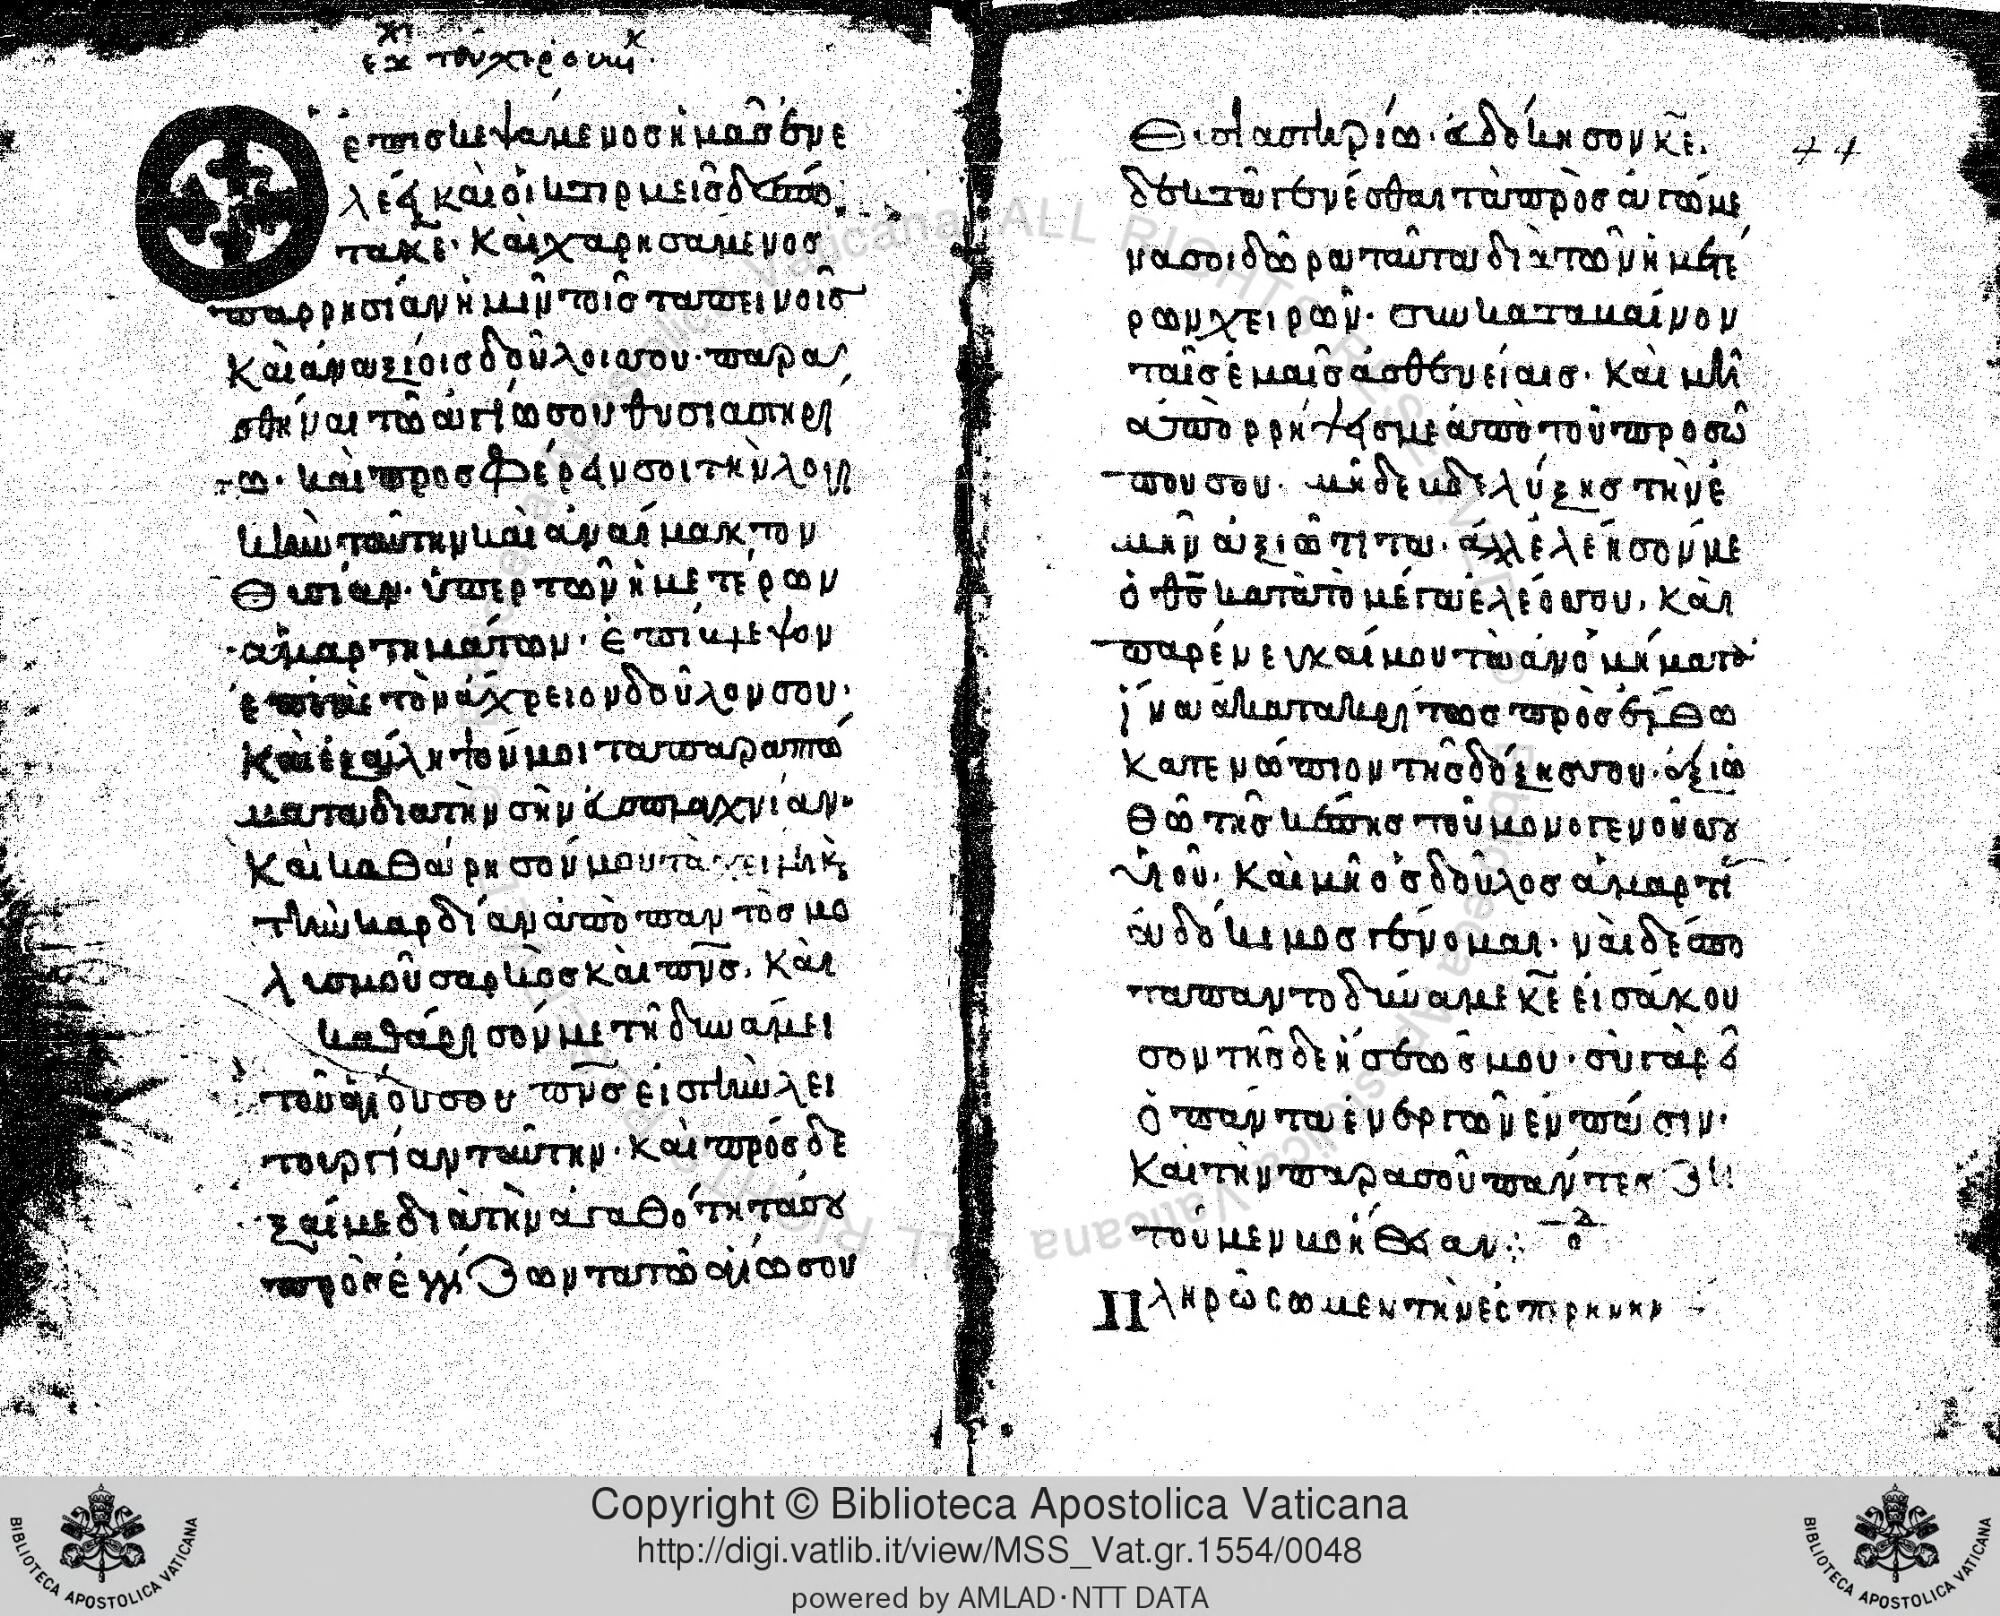 εχ τοῦ χερουβικ.
Ὁ ἐπισκεψάμενος ἡμᾶς ἐν ἐ
λέει καὶ οἰκτιρμεῖς δέσπο
τα κε. καὶ χαρησάμενος
παρρησίαν ἡμῖν τοῖς ταπεινοῖς
καὶ ἀναξίοις δούλοις σου. παρα
στῆναι τῶ ἁγίω σου θυσιαστηρί
ω. καὶ προσφέρειν σοι τὴν λογι
κὴν ταύτην καὶ ἀναίμακτον
θυσίαν. ὑπερ τῶν ἡμετέρων
ἁμαρτημάτων. ἐπίσκεψον
ἐπ' ἐμὲ τὸν ἀχρειον δοῦλον σου.
καὶ ἐξαίλητόν μοι τα παραπτώ
ματα δια τὴν σὴν εὐσπλαχνίαν.
καὶ καθαίρησόν μου τὰ χείλη κὲ
τὴν καρδίαν ἀπὸ παντὸς μο
λισμοῦ σαρκὸς καὶ πνς. καὶ
καθάρισόν με τῆ δυνάμει
τοῦ ἁγίου σου πνς εἰς τὴν λει
τουργίαν ταύτην. καὶ πρόσδε
ξαί με διὰ τὴν ἀγαθότητά σου
πρὸς ἐγγίζωντα τῶ ἁγίω σου
θισιαστηρίω. εὐδόκησον κε.
44
δεκτὰ γενέσθαι τὰ πρὸς ἀγώμε
να σοι δῶρα ταῦτα διὰ τῶν ἡμετέ
ρων χειρῶν. συνκατακαίνον
ταῖς ἐμαῖς ἀσθενείαις. καὶ μὴ
ἀπὸρρήψεις με ἀπὸ τοῦ προσώ
που σου. μὴδε βδελύξης τὴν ἐ
μὴν ἀξιώτιτα. ἀλλ' ἐλέησόν με
ὁ θς κατὰ τὸ μέγα ἐλέος σου. καὶ
παρένεγκαί μου τὼ ἀνομήματα
ἵνα ἀκατακρίτως πρὸς ἐλθω
κατενώπιον τῆς δόξης σου. ἀξιω
θῶ τῆς σκέπης τοῦ μονογενοῦ σου
υἱοῦ. καὶ μὴ ὁς δοῦλος ἁμαρτί
ἀδόκιμος γένομαι. ναὶ δέσπο
τα παντοδύναμε κε εἰσάκου
σον τῆς δεήσεώς μου. σὺ γὰρ εἶ
ὁ πάντα ἐνεργῶν ἐν πᾶσιν.
καὶ τὴν παρα σοῦ πάντες ζη
τούμεν βοήθειαν:
Πληρώσωμεν τὴν ἑσπερηνὴν
Copyright © Biblioteca Apostolica Vaticana
http://digi.vatlib.it/view/MSS_Vat.gr.1554/0048
powered by AMLAD·NTT DATA
BIBLIOTECA APOSTOLICA VATICANA
BIBLIOTECA APOSTOLICA VATICANA